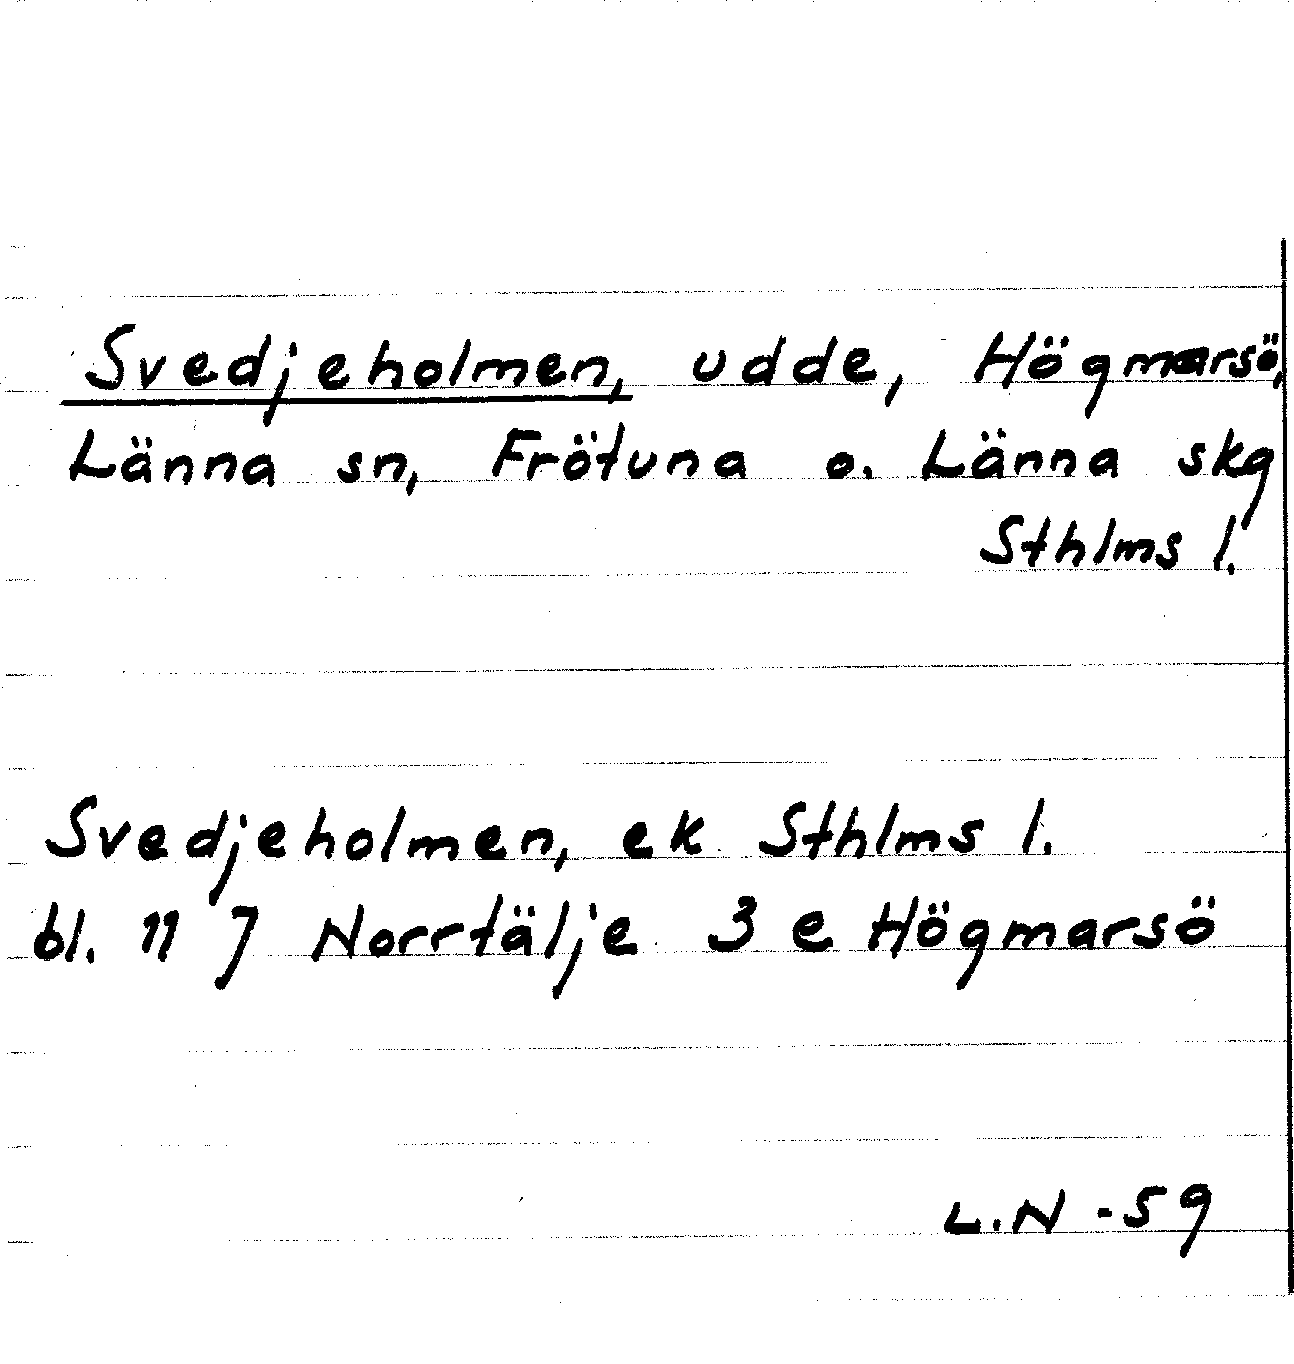 Svedjeholmen, udde, Högmarsö,
Länna sn, Frötuna o. Länna skg
Sthlms l.
Svedjeholmen, ek Sthlms l.
bl. 11 J Norrtälje 3 e Högmarsö
L.N -59